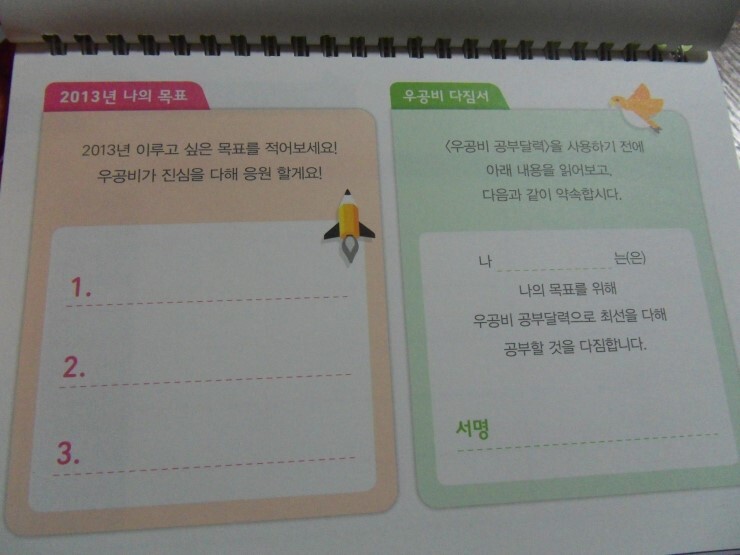 2013년 나의 목표
2013년 이루고 싶은 목표를 적어보세요!
우공비가 진심을 다해 응원 할게요!
1.
2.
3.
우공비 다짐서
<우공비 공부달력>을 사용하기 전에
아래 내용을 읽어보고,
다음과 같이 약속합시다.
나 는(은)
나의 목표를 위해
우공비 공부달력으로 최선을 다해
공부할 것을 다짐합니다.
서명